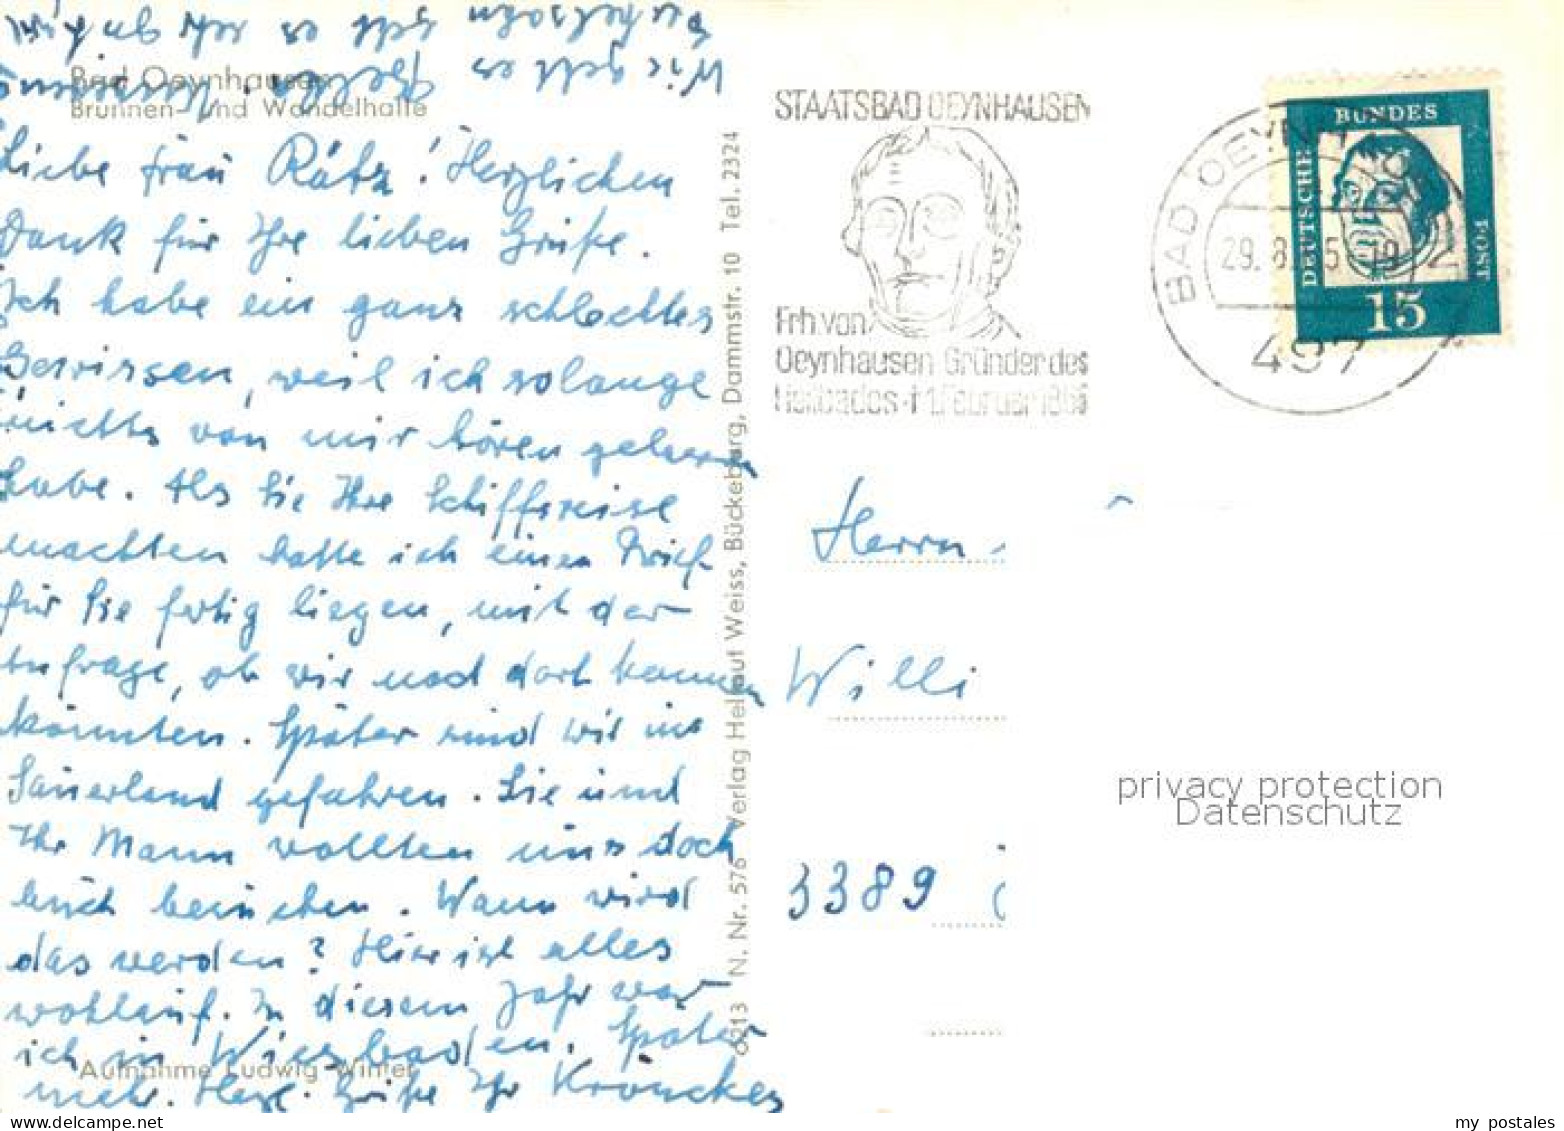 Bad Oeynhausen
Brunnen- und Wandelhalle
Liebe Frau Rätz! Herzlichen
Dank für Ihre lieben Grüße.
Ich habe ein ganz schlechtes
Gewissen, weil ich solange
nichts von mir hören gelassen
habe. Als Sie Ihre Schiffsreise
machten hatte ich einen Brief
für Sie fertig liegen, mit der
Anfrage, ob wir noch dort kommen
könnten. Später sind wir ins
Sauerland gefahren. Sie und
Ihr Mann wollten uns doch
auch besuchen. Wann wird
das werden? Hier ist alles
wohlauf. In diesem Jahr war
ich in Wiesbaden. Später
mehr. Herzl. Grüße Ihr
Wie geht es
geht es
Aufnahme Ludwig Winter
6213 N. Nr. 576 Verlag Helmut Weiss, Bückeburg, Dammstr. 10 Tel. 2324
STAATSBAD OEYNHAUSEN
Frh. von
Oeynhausen Gründer des
Heilbades + 1. Februar 1865
BAD OEYN
29. 8. 5 - 19
497
DEUTSCHE
BUNDES
POST
15
Herrn
Willi
3389
privacy protection
Datenschutz
www.delcampe.net
my_postales